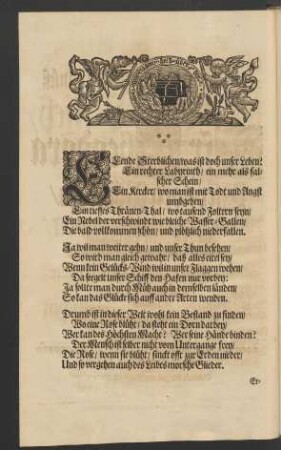 ELende Sterblichen/was ist doch unser Leben?
Ein rechter Labyrinth/ ein mehr als fal-
scher Schein/
Ein Kercker/ wo man ist mit Todt und Angst
umbgeben/
Ein tieffes Thränen-Thal/ wo tausend Foltern seyn/
Ein Nebel der verschwindt wie bleiche Wasser-Gallen/
Die bald vollkommen schön/ und plötzlich niederfallen.
Ja wil man weiter gehn/ und unser Thun besehen/
So wird man gleich gewahr/ daß alles eitel sey
Wenn kein Gelücks-Wind wil in unser Flaggen wehen/
Da segelt unser Schiff den Hafen nur vorbey:
Ja solte man durch Müh auch in demselben länden/
So kan das Glück sich auff andre Arten wenden.
Drumb ist in dieser Welt wohl kein Bestand zu finden/
Wo eine Rose blüht/ da steht ein Dorn darbey/
Wer kan des Höchsten Macht? Wer seine Hände binden?
Der Mensch ist selber nicht vom Untergange frey/
Die Rose/ wenn sie blüht/ sinckt offt zur Erden nieder/
Und so vergehen auch des Leibes morsche Glieder.
Er-